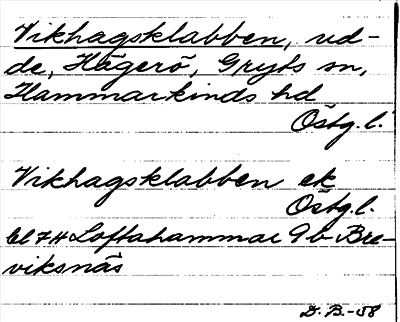 Vikhagsklabben, ud-
de, Hägerö, Gryts sn,
Hammarkinds hd
Östg. l.
Vikhagsklabben ek
Östg. l.
bl 7H Loftahammar 9b Bre-
viksnäs
D. B. -58